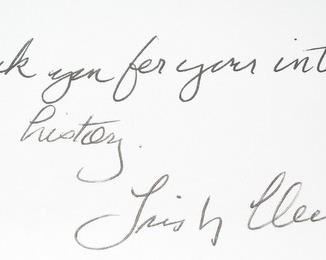 k you for your int
history.
Trish